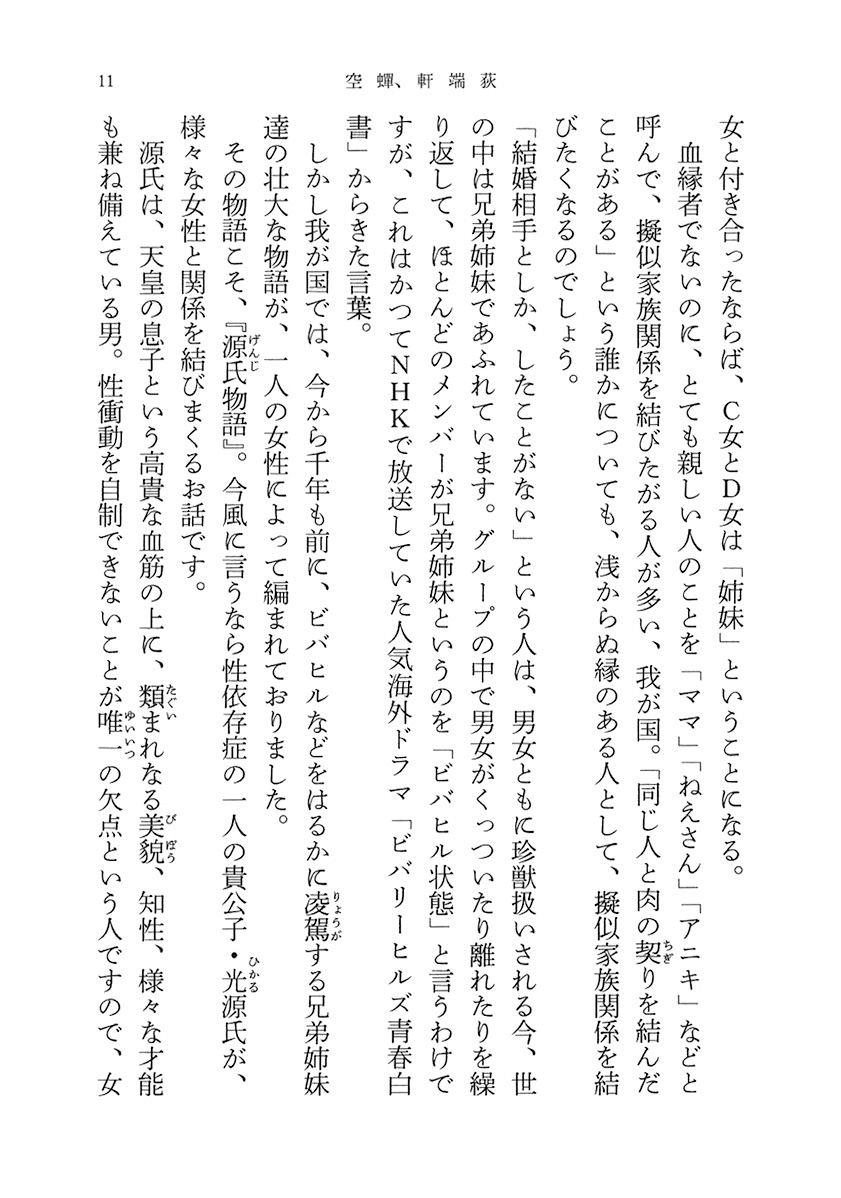 11
空蟬、軒端荻
女と付き合ったならば、C女とD女は「姉妹」ということになる。
血縁者でないのに、とても親しい人のことを「ママ」「ねえさん」「アニキ」などと
呼んで、擬似家族関係を結びたがる人が多い、我が国。「同じ人と肉の契りを結んだ
ことがある」という誰かについても、浅からぬ縁のある人として、擬似家族関係を結
びたくなるのでしょう。
「結婚相手としか、したことがない」という人は、男女ともに珍獣扱いされる今、世
の中は兄弟姉妹であふれています。グループの中で男女がくっついたり離れたりを繰
り返して、ほとんどのメンバーが兄弟姉妹というのを「ビバヒル状態」と言うわけで
すが、これはかつてNHKで放送していた人気海外ドラマ「ビバリーヒルズ青春白
書」からきた言葉。
しかし我が国では、今から千年も前に、ビバヒルなどをはるかに凌駕する兄弟姉妹
達の壮大な物語が、一人の女性によって編まれておりました。
その物語こそ、『源氏物語』。今風に言うなら性依存症の一人の貴公子・光源氏が、
様々な女性と関係を結びまくるお話です。
源氏は、天皇の息子という高貴な血筋の上に、類まれなる美貌、知性、様々な才能
も兼ね備えている男。性衝動を自制できないことが唯一の欠点という人ですので、女